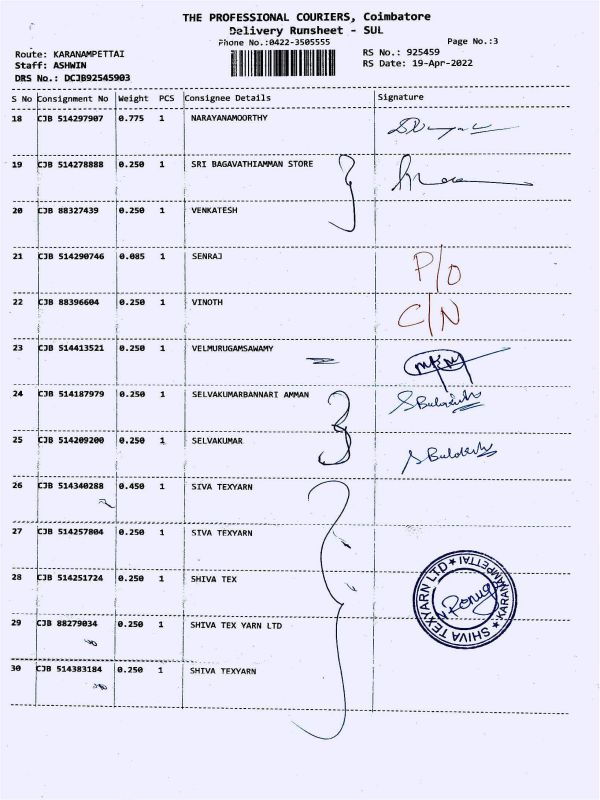 THE PROFESSIONAL COURIERS, Coimbatore
Delivery Runsheet - SUL
Phone No.:0422-3505555 Page No.:3
Route: KARANAMPETTAI RS No.: 925459
Staff: ASHWIN RS Date: 19-Apr-2022
DRS No.: DCJB92545903
S No Consignment No Weight PCS Consignee Details Signature
18 CJB 514297907 0.775 1 NARAYANAMOORTHY
19 CJB 514278888 0.250 1 SRI BAGAVATHIAMMAN STORE
20 CJB 88327439 0.250 1 VENKATESH
21 CJB 514290746 0.085 1 SENRAJ P/O
22 CJB 88396604 0.250 1 VINOTH C/N
23 CJB 514413521 0.250 1 VELMURUGAMSAWAMY
24 CJB 514187979 0.250 1 SELVAKUMARBANNARI AMMAN
25 CJB 514209200 0.250 1 SELVAKUMAR
26 CJB 514340288 0.450 1 SIVA TEXYARN
27 CJB 514257804 0.250 1 SIVA TEXYARN
28 CJB 514251724 0.250 1 SHIVA TEX
29 CJB 88279034 0.250 1 SHIVA TEX YARN LTD
30 CJB 514383184 0.250 1 SHIVA TEXYARN
SHIVA TEXYARN LTD ★ KARANAMPETTAI ★